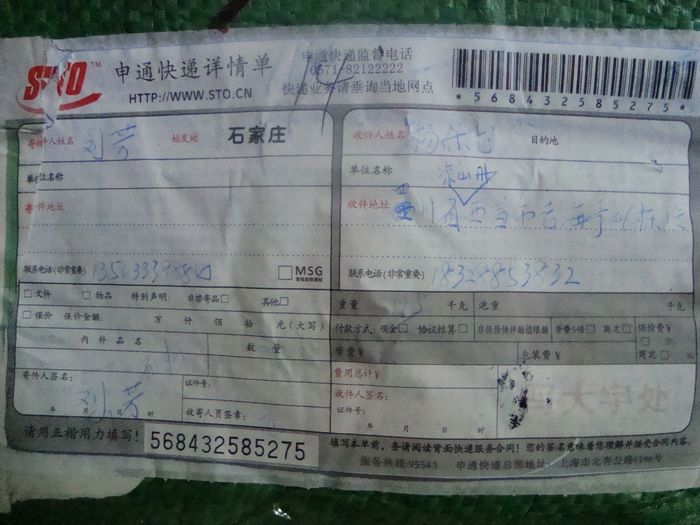 STO TM 申通快递详情单
HTTP://WWW.STO.CN
申通快递监督电话
0571-82122222
快递业务请垂询当地网点
*568432585275*
寄件人姓名 刘芳 始发地 石家庄
单位名称
寄件地址
联系电话(非常重要)
MSG
收件人姓名 目的地
单位名称 凉山州
收件地址 四川省西昌市
联系电话(非常重要)
文件 物品 特别声明: 非禁寄品 其他
保价 保价金额: 万 仟 佰 拾 元(大写)
内件品名 数量
重量 千克 池重 千克
付款方式: 现金 协议结算 非保价快件赔偿限额 资费5倍 商定 保价费¥
% 商定 %
资费¥ 包装费¥
费用总计¥
寄件人签名: 证件号:
刘芳
年 月 日 时 收寄人员签章:
收件人签名:
证件号:
年 月 日 时
请用正楷用力填写!
568432585275
填写本单前,务请阅读背面快递服务合同!您的签名意味着您理解并接受合同内容。
服务热线:95543 申通快递总部地址:上海市北青公路6186号